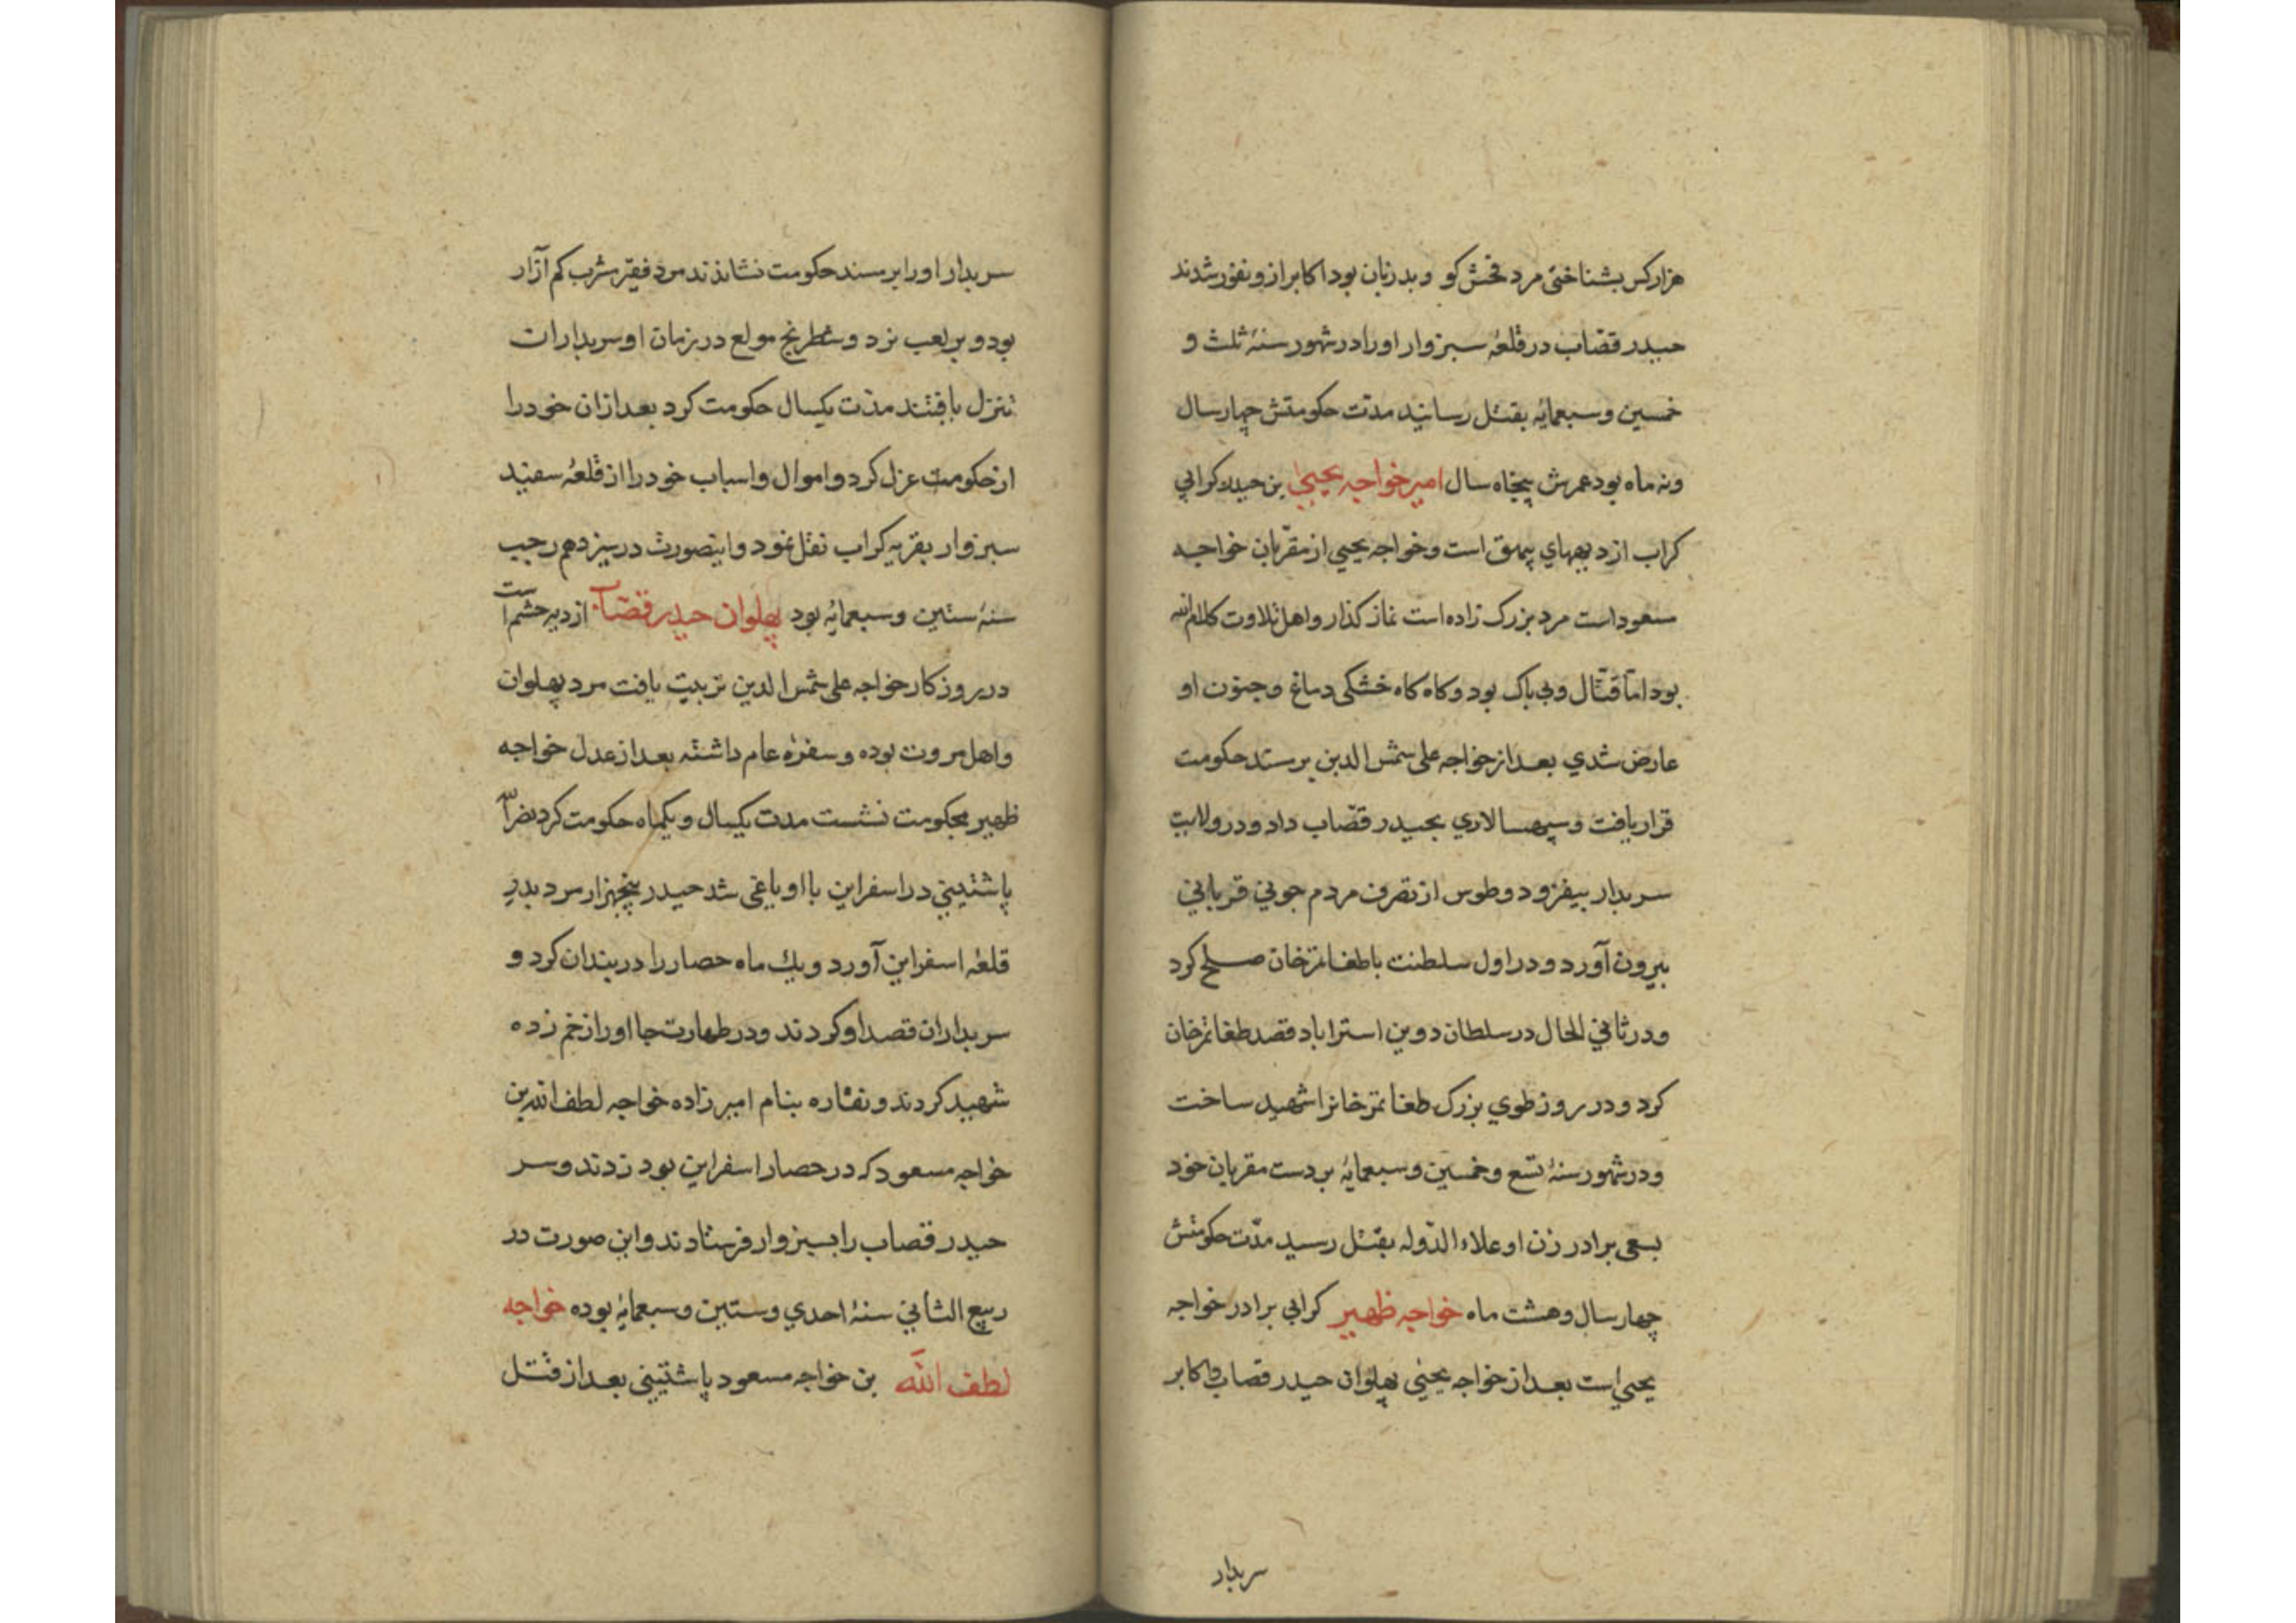 هزار کس بشناختی مرد فحش کو و بد زبان بود اکابر ازو نفور شدند
حیدر قصّاب در قلعهٔ سبزوار اورا در شهور سنهٔ ثلث و
خمسین و سبعمایه بقتل رسانید مدّت حکومتش چهار سال
ونه ماه بود عمرش پنجاه سال امیر خواجه یحییٰ بن حیدر کرابی
کراب از دیههای بیهق است و خواجه یحیی از مقرّبان خواجه
مسعود است مرد بزرک زاده است نماز کذار و اهل تلاوت کلام الله
بود امّا قتّال و بی باک بود و کاه کاه خشکی دماغ و جنون او
عارض شدي بعد از خواجه علی شمس الدین بر مسند حکومت
قرار یافت و سپهسالاري بحیدر قصّاب داد و در ولایت
سربدار بیفزود و طوس از تصرف مردم جونی قربانی
بیرون آورد و در اول سلطنت با طغا تمرخان صلح کرد
و در ثاني الحال در سلطان دوین استراباد قصد طغا تمرخان
کرد و در روز طوي بزرک طغا تمرخانرا شهید ساخت
و در شهور سنهٔ تسع و خمسین و سبعمایهٔ بر دست مقربان خود
بسعی برادر زن او علاء الدّوله بقتل رسید مدّت حکومتش
چهار سال و هشت ماه خواجه ظهیر کرابی برادر خواجه
یحیی است بعد از خواجه یحیی پهلوان حیدر قصاب و اکابر
سربدار
سربدار اورا بر مسند حکومت نشاندند مرد فقیر مشرب کم آزار
بود و بر لعب نرد و شطرنج مولع در زمان او سربداران
تنزل یافتند مدّت یکسال حکومت کرد بعد ازان خود را
از حکومت عزل کرد و اموال و اسباب خود را از قلعهٔ سفید
سبزوار بقریه کراب نقل نمود و اینصورت در سیزدهم رجب
سنهٔ ستین و سبعمایهٔ بود پهلوان حیدر قصّاب از دیه جشم است
در روزکار خواجه علی شمس الدین تربیت یافت مرد پهلوان
واهل مروت بوده و سفرهٔ عام داشته بعد از عدل خواجه
ظهیر بحکومت نشست مدت یکسال و یکماه حکومت کرد نصر الله
پاشتینی در اسفراین با او یاغی شد حیدر پنجهزار مرد بدر
قلعهٔ اسفراین آورد و یک ماه حصار را در بندان کرد و
سربداران قصد او کردند و در طهارت جا اورا زخم زده
شهید کردند و نقاره بنام امیر زاده خواجه لطف الله بن
خواجه مسعود که در حصار اسفراین بود زدند و سر
حیدر قصاب را بسبزوار فرستادند و این صورت در
ربیع الثانی سنهٔ احدي و ستین و سبعمایهٔ بوده خواجه
لطف الله بن خواجه مسعود پاشتینی بعد از قتل